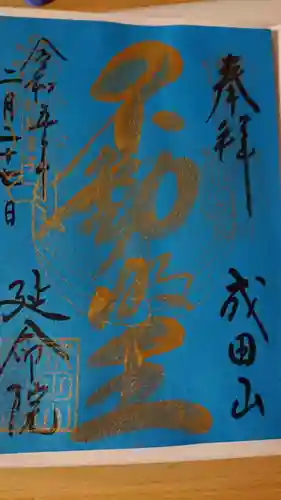 奉拝
成田山
不動堂
令和五年
二月二十七日
延命院